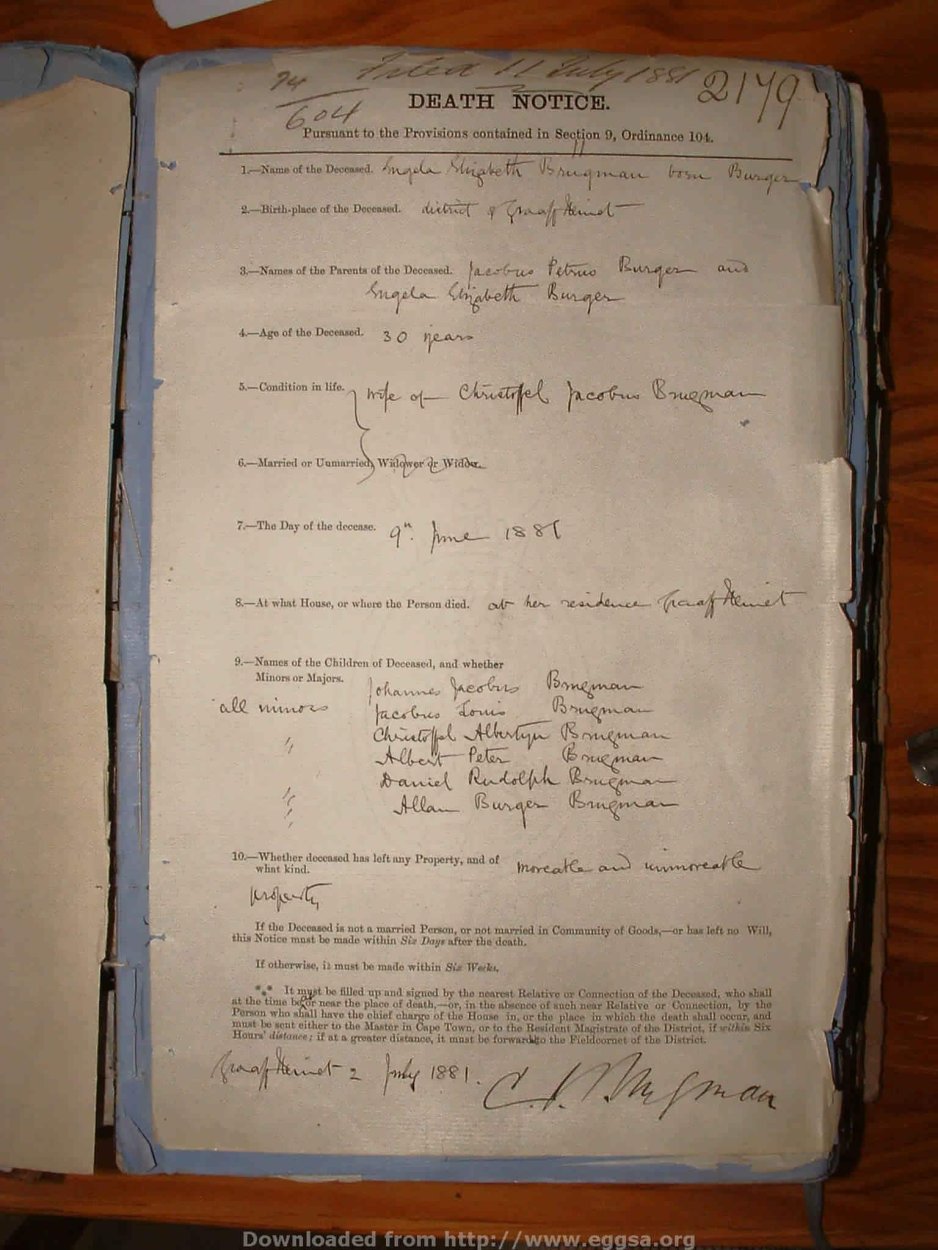 Filed 11 July 1881
2179
94
604
DEATH NOTICE.
Pursuant to the Provisions contained in Section 9, Ordinance 104.
1.—Name of the Deceased. Engela Elizabeth Brugman born Burger
2.—Birth-place of the Deceased. district of Graaff Reinet
3.—Names of the Parents of the Deceased. Jacobus Petrus Burger and
Engela Elizabeth Burger
4.—Age of the Deceased. 30 years
5.—Condition in life. wife of Christoffel Jacobus Brugman
6.—Married or Unmarried, Widower or Widow.
7.—The Day of the decease. 9th June 1881
8.—At what House, or where the Person died. at her residence Graaff Reinet
9.—Names of the Children of Deceased, and whether
Minors or Majors. Johannes Jacobus Brugman
all minors Jacobus Louis Brugman
" Christoffel Albertyn Brugman
Albert Peter Brugman
Daniel Rudolph Brugman
" Allan Burger Brugman
"
10.—Whether deceased has left any Property, and of
what kind. moveable and immoveable
property
If the Deceased is not a married Person, or not married in Community of Goods,—or has left no Will,
this Notice must be made within Six Days after the death.
If otherwise, it must be made within Six Weeks.
*** It must be filled up and signed by the nearest Relative or Connection of the Deceased, who shall
at the time be at or near the place of death,—or, in the absence of such near Relative or Connection, by the
Person who shall have the chief charge of the House in, or the place in which the death shall occur, and
must be sent either to the Master in Cape Town, or to the Resident Magistrate of the District, if within Six
Hours' distance; if at a greater distance, it must be forward to the Fieldcornet of the District.
Graaff Reinet 2 July 1881.
C. J. Brugman
Downloaded from http://www.eggsa.org